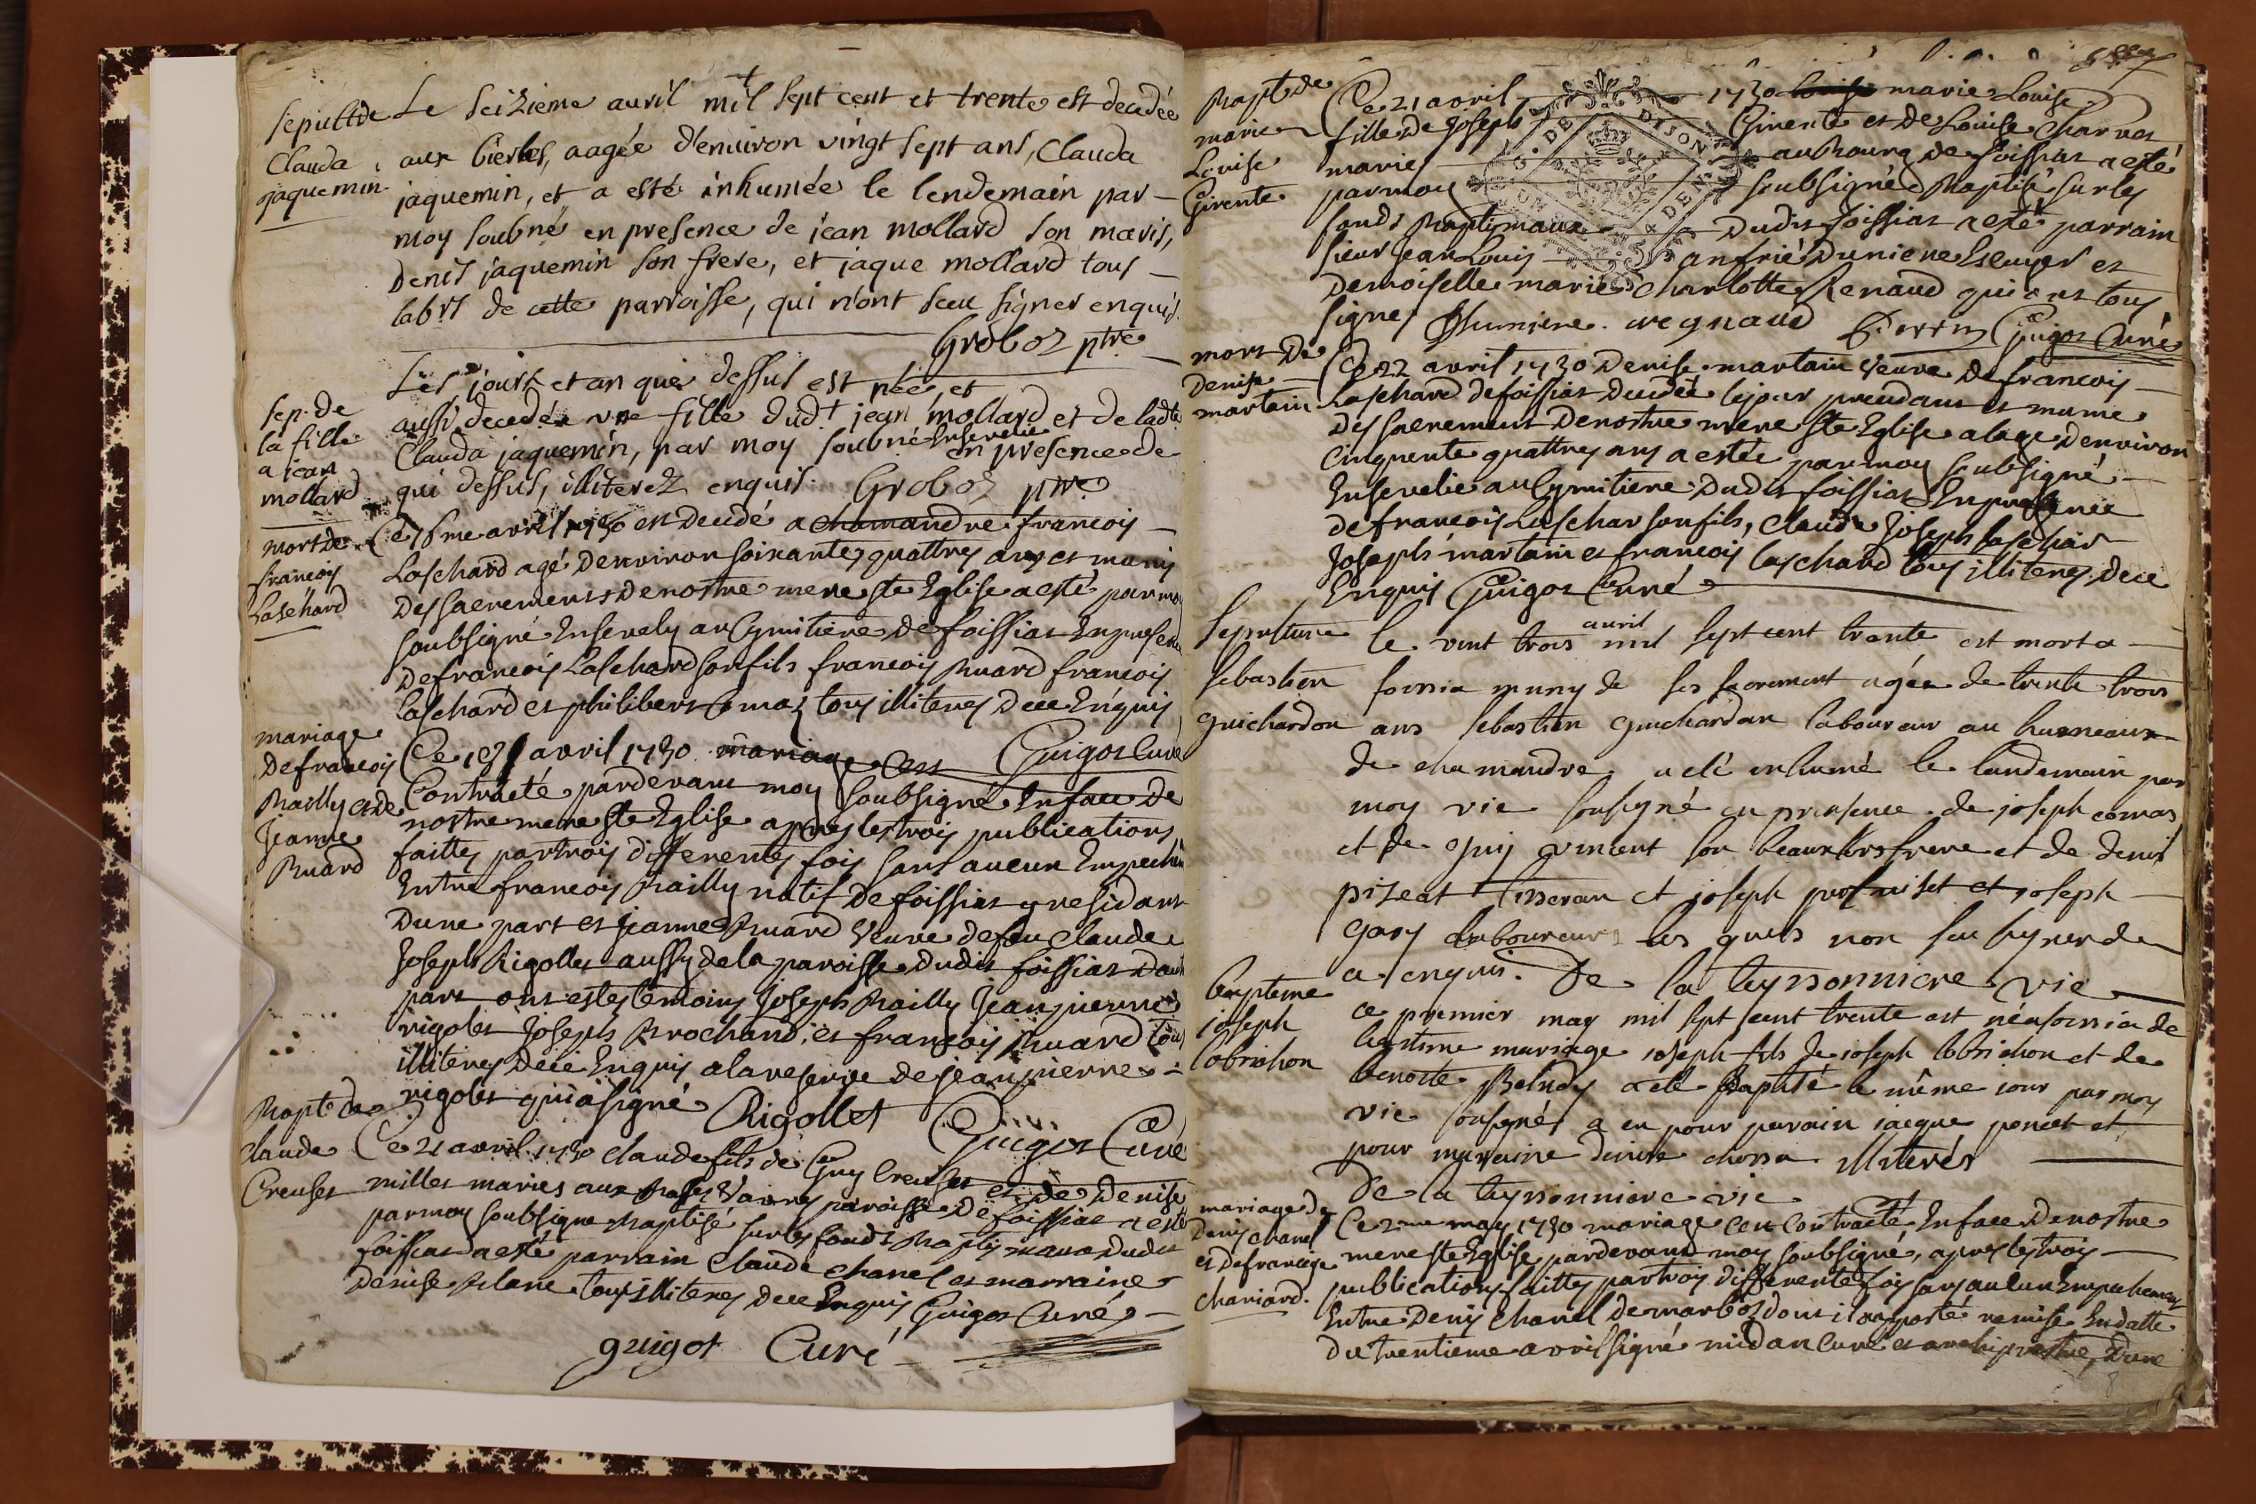 Sepultde
Clauda
jaquemin
Le seizieme auril mil sept cent et trente est decedée
aux bierles, aagée d'enuiron vingt sept ans, Clauda
jaquemin, et a esté inhumée le lendemain par
moy soubné en presence de jean mollard son maris,
denis jaquemin son frere, et jaque mollard tous
labrs de cette parroisse, qui n'ont sceu signer enquis.
Groboz ptre
sep. de
la fille
a jean
mollard
Les jours et an que dessus est née et
aussi decedée une fille dudt jean mollard et de ladte
Clauda jaquemin, par moy soubné Enseuelie en presence de
qui dessus, illiterez enquis. Groboz ptre
mort de
francois
Laschard
Ce 16me avril 1730 est decedé a chamandre francois
Laschard agé denviron soixante quattres ans et muni
des sacrements de nostre mere Ste Eglise a esté par moy
soubsigné Ensevely au Cymitiere de foissiat En presence
de francois Laschard son fils francois Buard francois
laschard et philibert Comaz tous illiteres de ce Enquis
Guigot Curé
mariage
de francois
Bailly et de
Jeanne
Buard
Ce avril 1730 mariage est
Contracté pardevant moy soubsigné En face de
nostre mere Ste Eglise apres les trois publications
faittes par trois differentes fois sans aucun Empechm
Entre francois Bailly natif de foissiat y residant
dune part et jeanne Buard Veuve de feu Claude
Joseph Rigollet aussy de la paroisse dudit foissiat d'autre
part ont estes temoins Joseph Bailly Jeanpierre
rigolet Joseph Brochand, et francois Buard tous
illiteres de ce Enquis a la reserve de jeanpierre
rigolet qui a signé Rigollet
Guigot Curé
Bapt de
claude
Creuset
Ce 21 avril 1730 claude fils de Guy Creuset et de Denise
millet maries aux Vavres paroisse de foissiat a esté
par moy soubsigné Baptisé sur les fonds Baptismaux dudit
foissiat a esté parrain Claude chanel et marraine
denise Blanc tous illiteres de ce Enquis Guigot Curé
guigot Curé
Bapt de
marie
Louise
Girente
Ce 21 avril 1730 marie Louise
fille de Joseph Girente et de Louise Charnet
marie au Bourg de foissiat a esté
par moy soubsigné Baptisé sur les
fonds Baptismaux dudit foissiat a esté parrain
sieur Jean Louis anfrié duniere Escuyer et
Demoiselle marie Charlotte Renaud qui ont tous
signes regnaud Guigot Curé
G. DE DIJON
mort de
Denise
martain
Ce 22 avril 1730 Denise martain Veuve de francois
Laschard de foissiat decedée le jour precedant et munie
des sacrement de nostre mere Ste Eglise a lage denviron
cinquente quattres ans a estée par moy soubsigné
Ensevelie au Cymitiere dudit foissiat En presence
de francois Laschar son fils, Claude Joseph laschar
Joseph martain et francois laschard tous illiteres de ce
Enquis Guigot Curé
Sepulture
sebastien
guichardon
le vint trois avril mil sept cent trente est mort a
foissia muny de ses sacrement agée de trente trois
ans sebastien guichardan laboureur au humeaux
de chamandre a eté inhumé le landemain par
moy vic sousigné en presence de joseph comas
et de guy vincent son beaux frere et de denis
piseat tisseran et joseph et joseph
gary laboureurs les quels non seu signer de
ce enquis. De la teyssonniere vic
bapteme
joseph
lobrichon
ce premier may mil sept cent trente est né a foissia de
legitime mariage joseph fils de joseph lobrichon et de
benoite a eté baptisé le même jour par moy
vic sousigné a eu pour parain jacque poncet et
pour maraine denise illiterés
De la teyssonniere vic
mariage de
Denis chanel
et de francoise
chariard.
Ce 2me may 1730 mariage est Contracté En face de nostre
mere Ste Eglise pardevant moy soubsigné, apres les trois
publications faittes par trois differentes fois sans aucun Empechement
Entre Denis Chanel de marboz dont il a apporté remise En datte
du trentieme avril signé midan Curé et archiprestre, dune